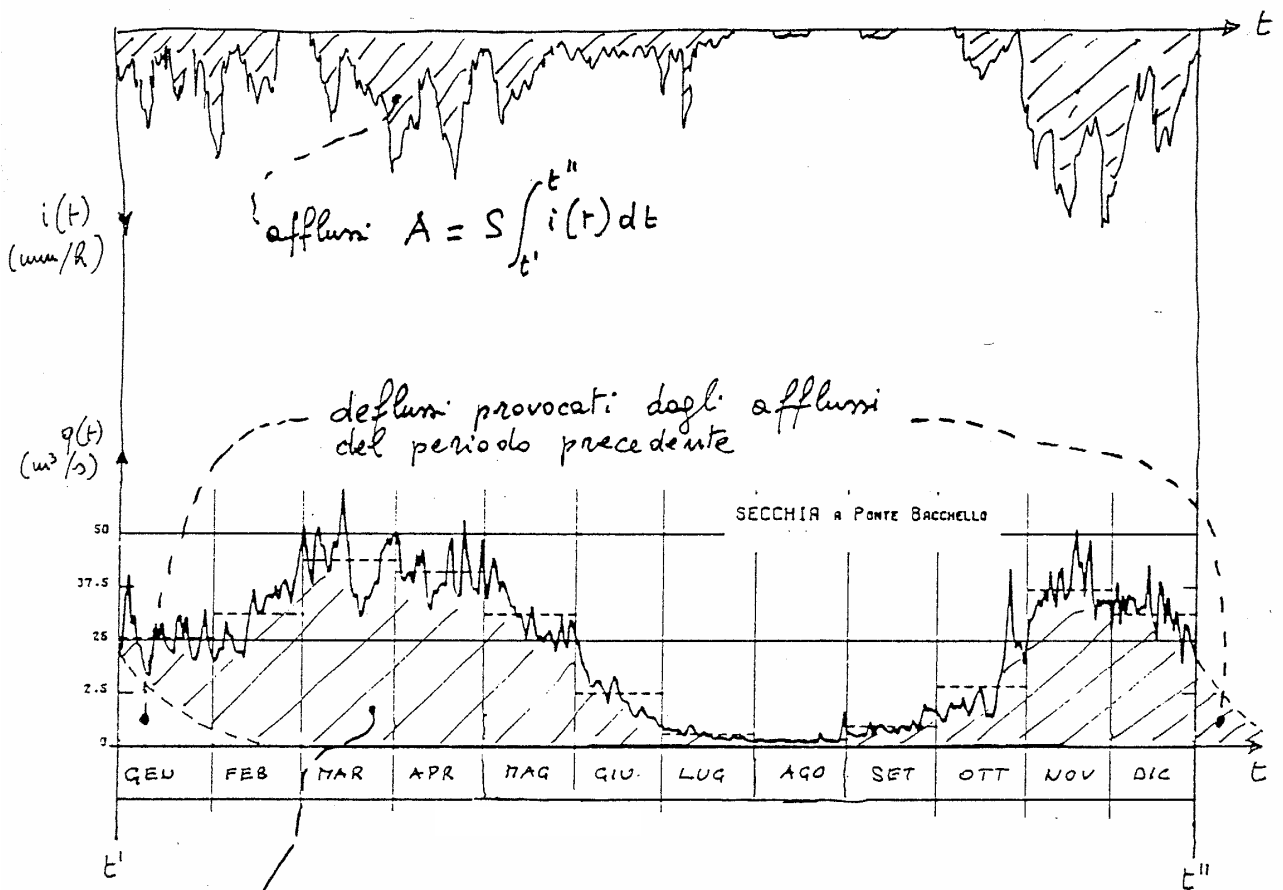 t
i(t)
(mm/h)
afflussi A = S ∫ t' t'' i(t) dt
deflussi provocati dagli afflussi
del periodo precedente
q(t)
(m³/s)
SECCHIA A PONTE BACCHELLO
50
37.5
25
2.5
0
GEN FEB MAR APR MAG GIU. LUG AGO SET OTT NOV DIC
t
t' t''